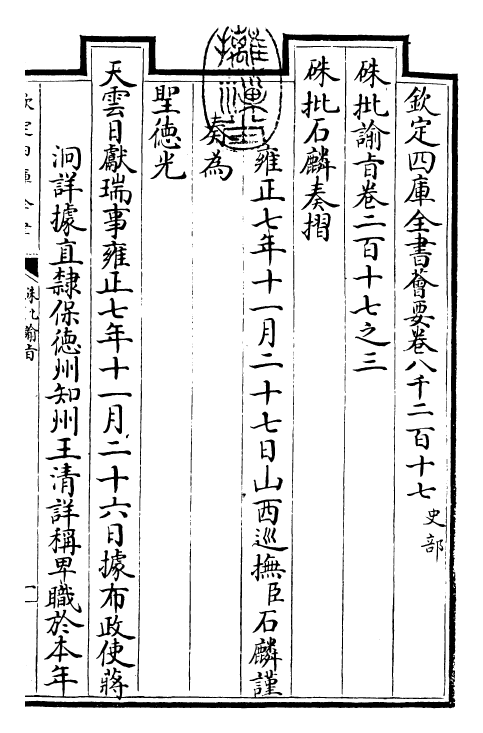 欽定四庫全書薈要卷八千二百十七 史部
硃批諭旨卷二百十七之三
硃批石麟奏摺
雍正七年十一月二十七日山西巡撫臣石麟謹
奏為
聖德光
天雲日獻瑞事雍正七年十一月二十六日據布政使蔣
洞詳據直隸保德州知州王清詳稱卑職於本年
硃批諭旨
一